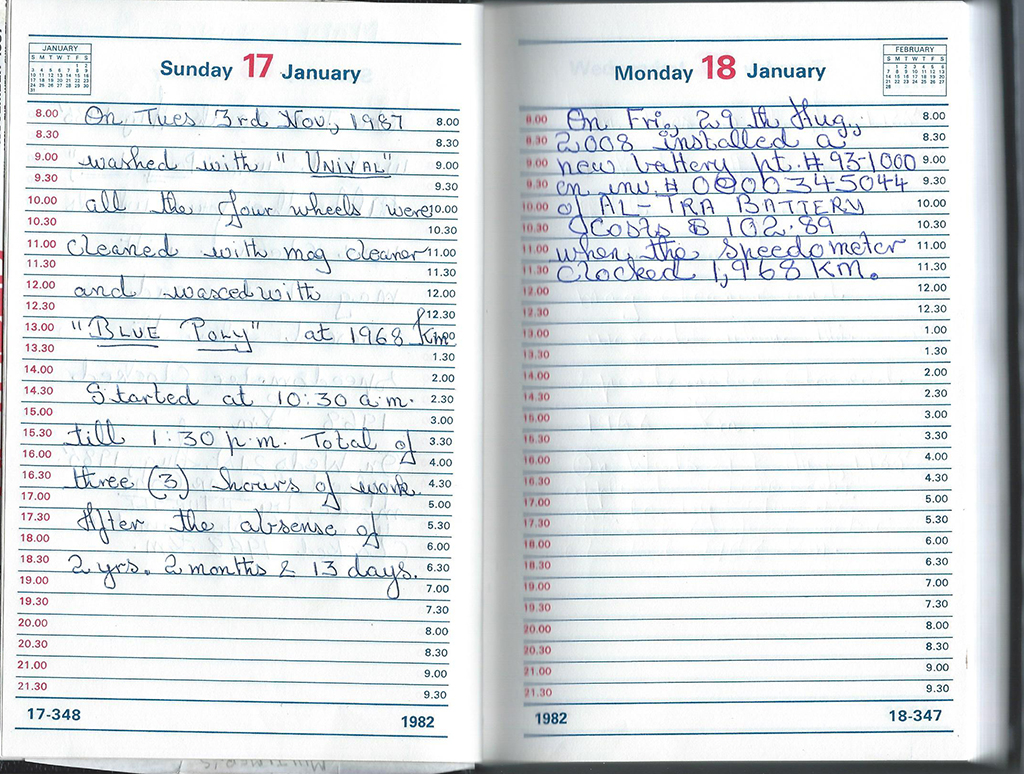 JANUARY
S M T W T F S
1 2
3 4 5 6 7 8 9
10 11 12 13 14 15 16
17 18 19 20 21 22 23
24 25 26 27 28 29 30
31
Sunday 17 January
8.00 On Tues 3rd Nov., 1987 8.00
8.30 8.30
9.00 washed with "UNIVAL" 9.00
9.30 9.30
10.00 all the four wheels were 10.00
10.30 10.30
11.00 cleaned with mag cleaner 11.00
11.30 11.30
12.00 and waxed with 12.00
12.30 12.30
13.00 "BLUE POLY" at 1968 Km
13.30 1.30
14.00 2.00
14.30 Started at 10:30 a.m. 2.30
15.00 3.00
15.30 till 1:30 p.m. Total of 3.30
16.00 4.00
16.30 three (3) hours of work 4.30
17.00 5.00
17.30 After the absense of 5.30
18.00 6.00
18.30 2 yrs. 2 months & 13 days. 6.30
19.00 7.00
19.30 7.30
20.00 8.00
20.30 8.30
21.00 9.00
21.30 9.30
17-348 1982
Monday 18 January
FEBRUARY
S M T W T F S
1 2 3 4 5 6
7 8 9 10 11 12 13
14 15 16 17 18 19 20
21 22 23 24 25 26 27
28
8.00 On Fri, 29 th Aug, 8.00
8.30 2008 installed a 8.30
9.00 new battery pt.# 93-1000 9.00
9.30 on inv.# 0000345044 9.30
10.00 of AL-TRA BATTERY 10.00
10.30 Costs $ 102.89 10.30
11.00 when the speedometer 11.00
11.30 clocked 1,968 KM. 11.30
12.00 12.00
12.30 12.30
13.00 1.00
13.30 1.30
14.00 2.00
14.30 2.30
15.00 3.00
15.30 3.30
16.00 4.00
16.30 4.30
17.00 5.00
17.30 5.30
18.00 6.00
18.30 6.30
19.00 7.00
19.30 7.30
20.00 8.00
20.30 8.30
21.00 9.00
21.30 9.30
1982 18-347